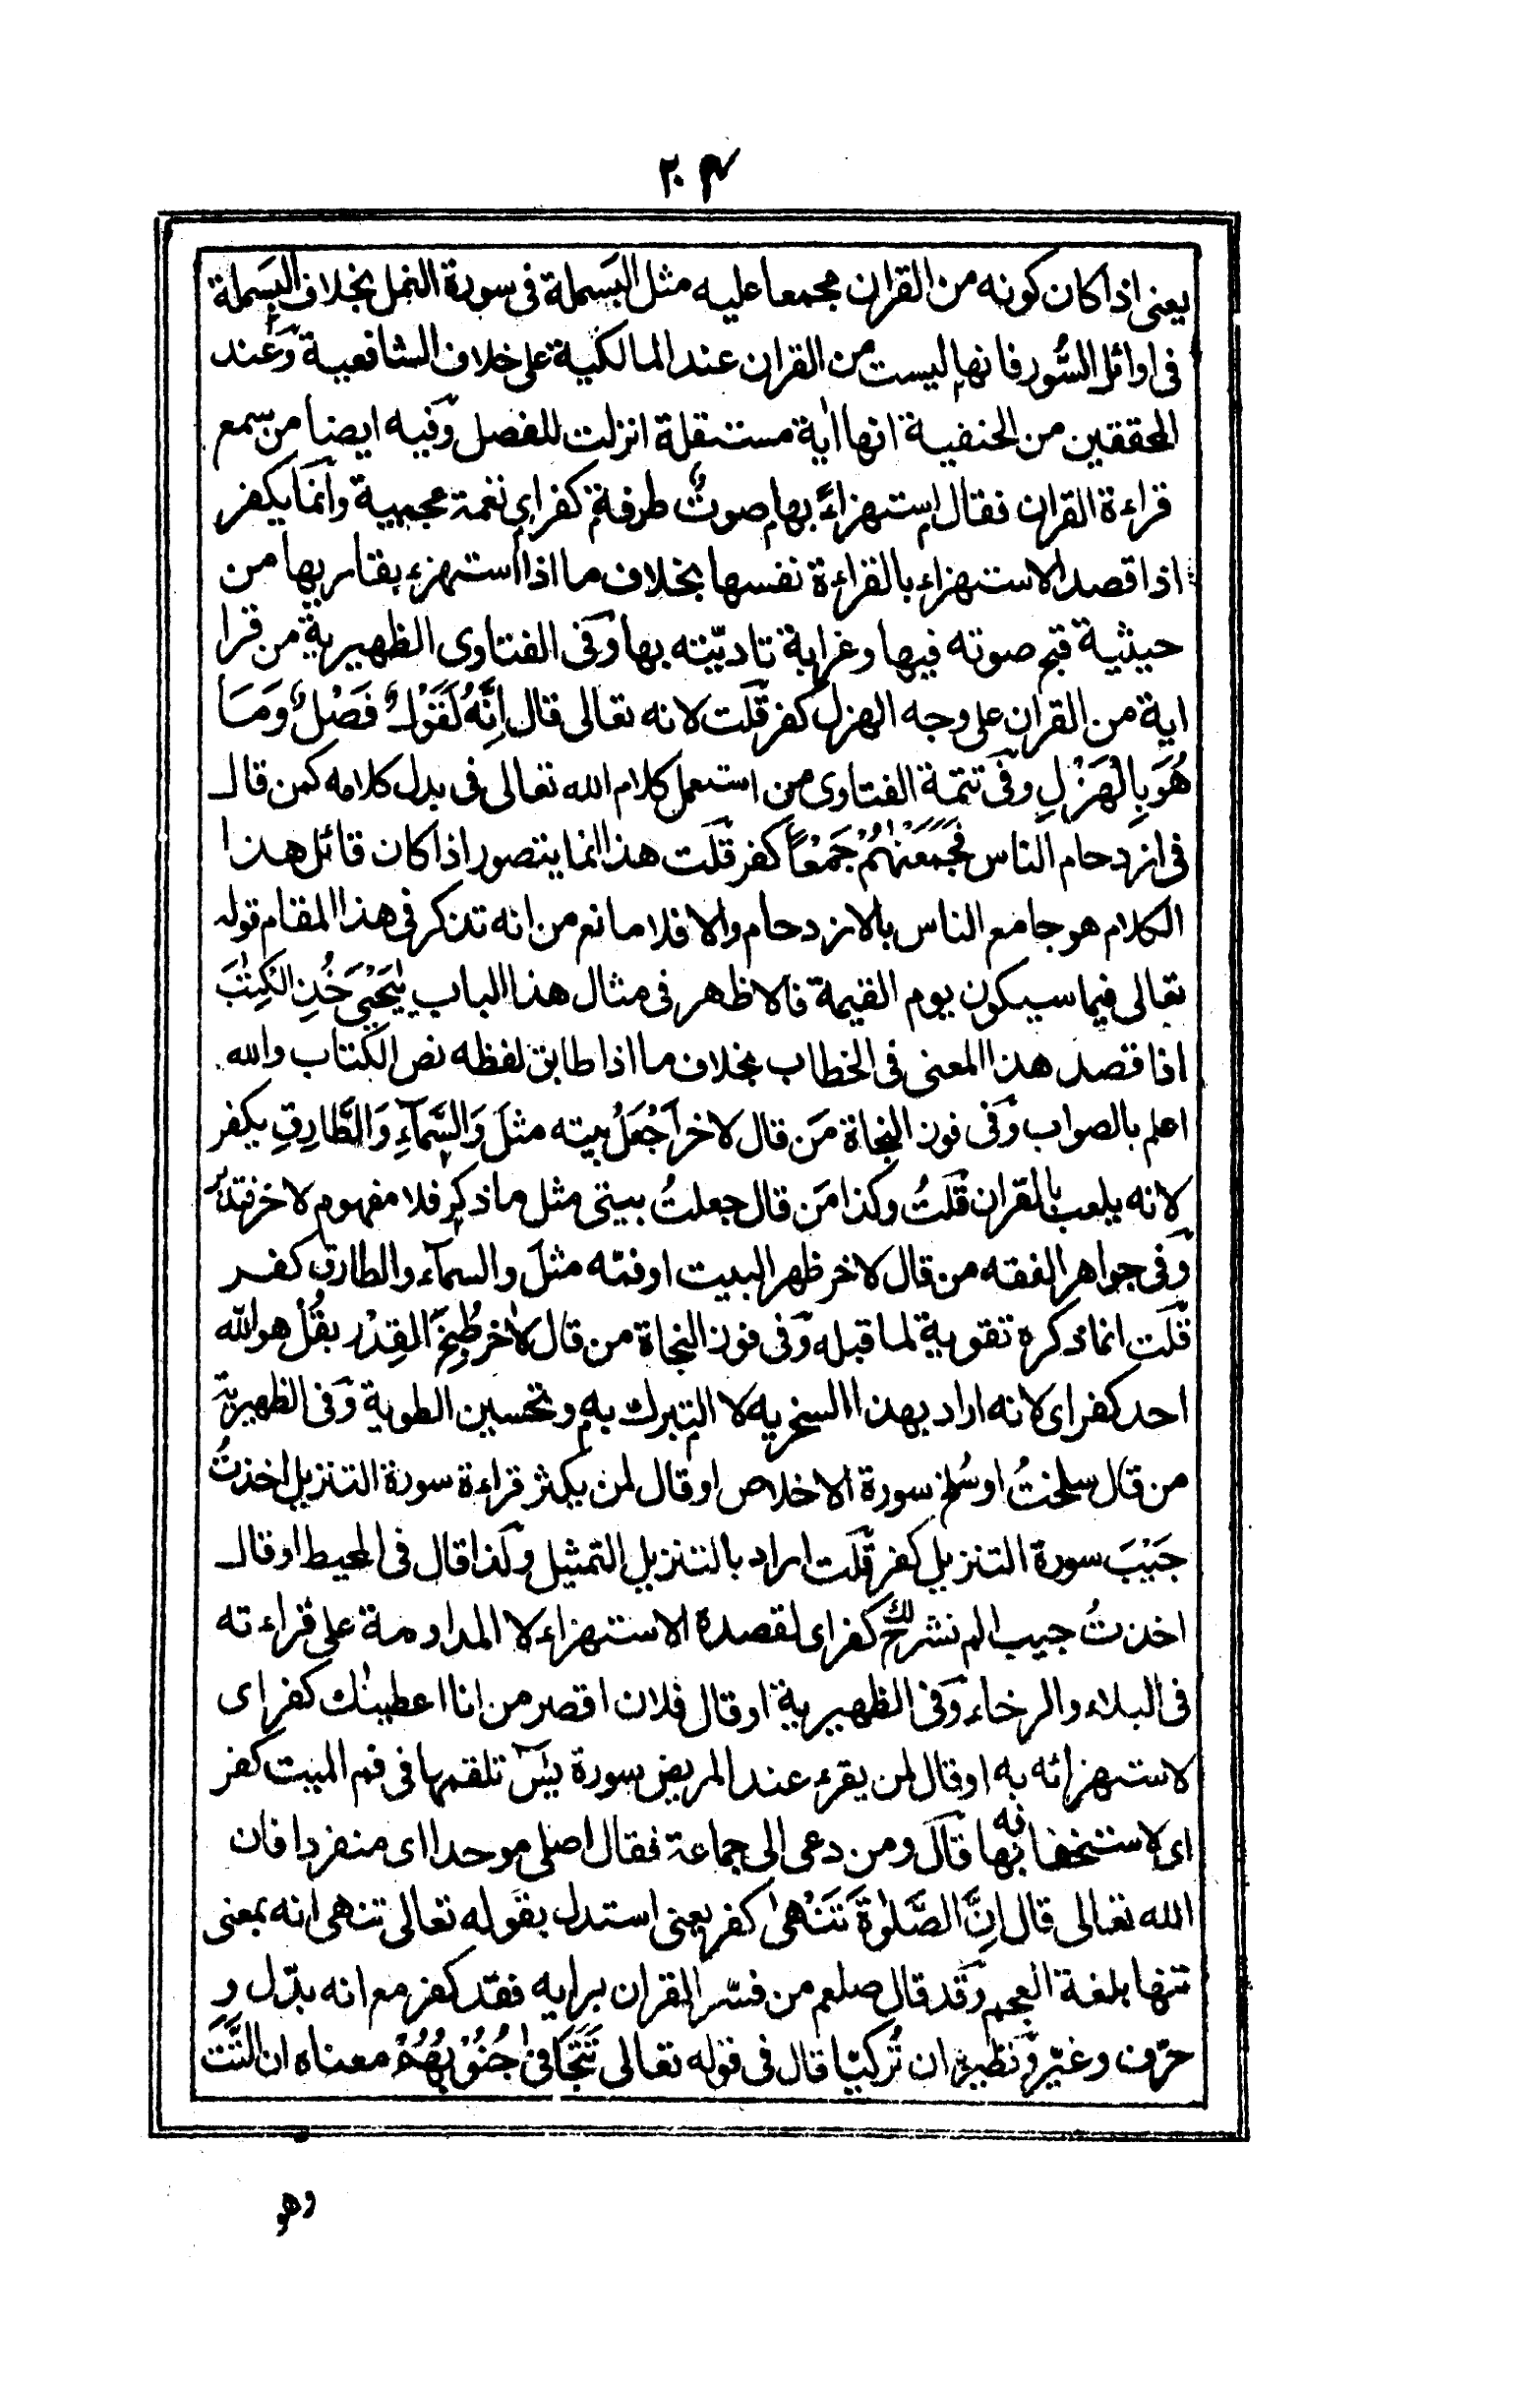 ٢٠٤
يعنى اذا كان كونه من القران مجمعا عليه مثل البَسملة فى سورة النمل بخلاف البسملة
فى اوائل السُّور فانها ليست من القران عند المالكية على خلاف الشافعية وعند
المحققين من الحنفية انها اية مستقلة انزلت للفصل وفيه ايضا من سمع
قراءة القران فقال استهزاءً بها صوتٌ طرفة كفر اى نغمة عجيبة وانما يكفر
اذا قصد الاستهزاء بالقراءة نفسها بخلاف ما اذا استهزء بقاربها من
حيثية قبح صوته فيها وغرابة تاديّته بها وفى الفتاوى الظهيرية من قرا
اية من القران على وجه الهزل كفر قلت لانه تعالى قال اِنَّهُ لَقَوْلٌ فَصْلٌ وَمَا
هُوَ بِالْهَزْلِ وفى تتمة الفتاوى من استعمل كلام الله تعالى فى بدل كلامه كمن قال
فى ازدحام الناس فَجَمَعْنٰهُمْ جَمْعًا كفر قلت هذا انما يتصور اذا كان قائل هذا
الكلام هو جامع الناس بالازدحام والا فلا مانع من انه تذكر فى هذا المقام قوله
تعالى فيما سيكون يوم القيمة فالاظهر فى مثال هذا الباب يٰيَحْيٰى خُذِ الْكِتٰبَ
اذا قصد هذا المعنى فى الخطاب بخلاف ما اذا طابق لفظه نص الكتاب والله
اعلم بالصواب وفى فوز النجاة مَن قال لاخر اَجْعَلُ بيته مثلَ وَالسَّمَآءِ وَالطَّارِقِ يكفر
لانه يلعب بالقران قلتُ وكذا مَن قال جعلتُ بيتى مثل ما ذكر فلا مفهوم لاخر فتدبر
وفى جواهر الفقه من قال لاخر ظهر البيت او فمّه مثلَ والسمآء والطارق كفر
قلت انما ذكره تقوية لما قبله وفى فوز النجاة من قال لاخر طُبِخَ القِدْر بقُلْ هو الله
احد كفر اى لانه اراد بهذا السخريه لا التبرك به وتحسين الطوية وفى الظهيرية
من قال سلختُ او سُلخ سورة الاخلاص او قال لمن يكثر قراءة سورة التنزيل اخذتُ
جَيْبَ سورة التنزيل كفر قلت اراد بالتنزيل التمثيل وكذا قال فى المحيط او قال
اخذتُ جيب الم نشرح لك كفر اى لقصده الاستهزاء لا المداومة على قراءته
فى البلاء والرخاء وفى الظهيرية او قال فلان اقصر من انا اعطينٰك كفر اى
لاستهزائه به او قال لمن يقرء عند المريض سورة يٰسٓ تلقمها فى فم الميت كفر
اى لاستخفافه بها قال ومن دعى الى جماعة فقال اصلى موحدا اى منفردا فان
الله تعالى قال اِنَّ الصَّلٰوةَ تَنْهٰى كفر يعنى استدل بقوله تعالى تنهى انه بمعنى
تنها بلغة العجم وقد قال صلعم من فسّر القران برايه فقد كفر مع انه بدّل و
حرّف وغيّر ونظيره ان تُركيّا قال فى قوله تعالى تَتَجَافٰى جُنُوْبُهُمْ معناه ان التَّتَ
وهو